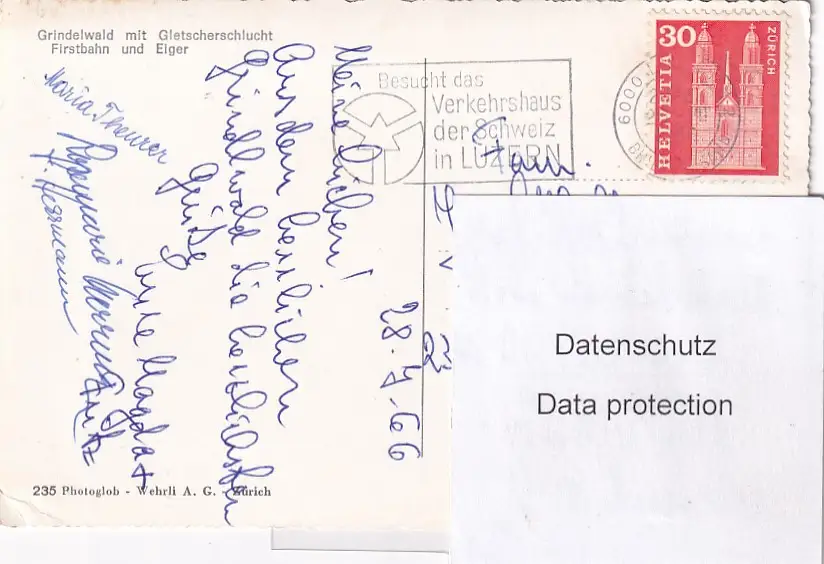 Grindelwald mit Gletscherschlucht
Firstbahn und Eiger
Besucht das
Verkehrshaus
der Schweiz
in LUZERN
6000
HELVETIA
30
ZÜRICH
28.7.66
Meine Lieben!
Aus dem herrlichen
Grindelwald die herzlichsten
Grüße
Magda +
Fritz
Maria Theurer
Rosemarie
H. Herrmann
Fam.
Datenschutz
Data protection
235 Photoglob - Wehrli A. G. - Zürich